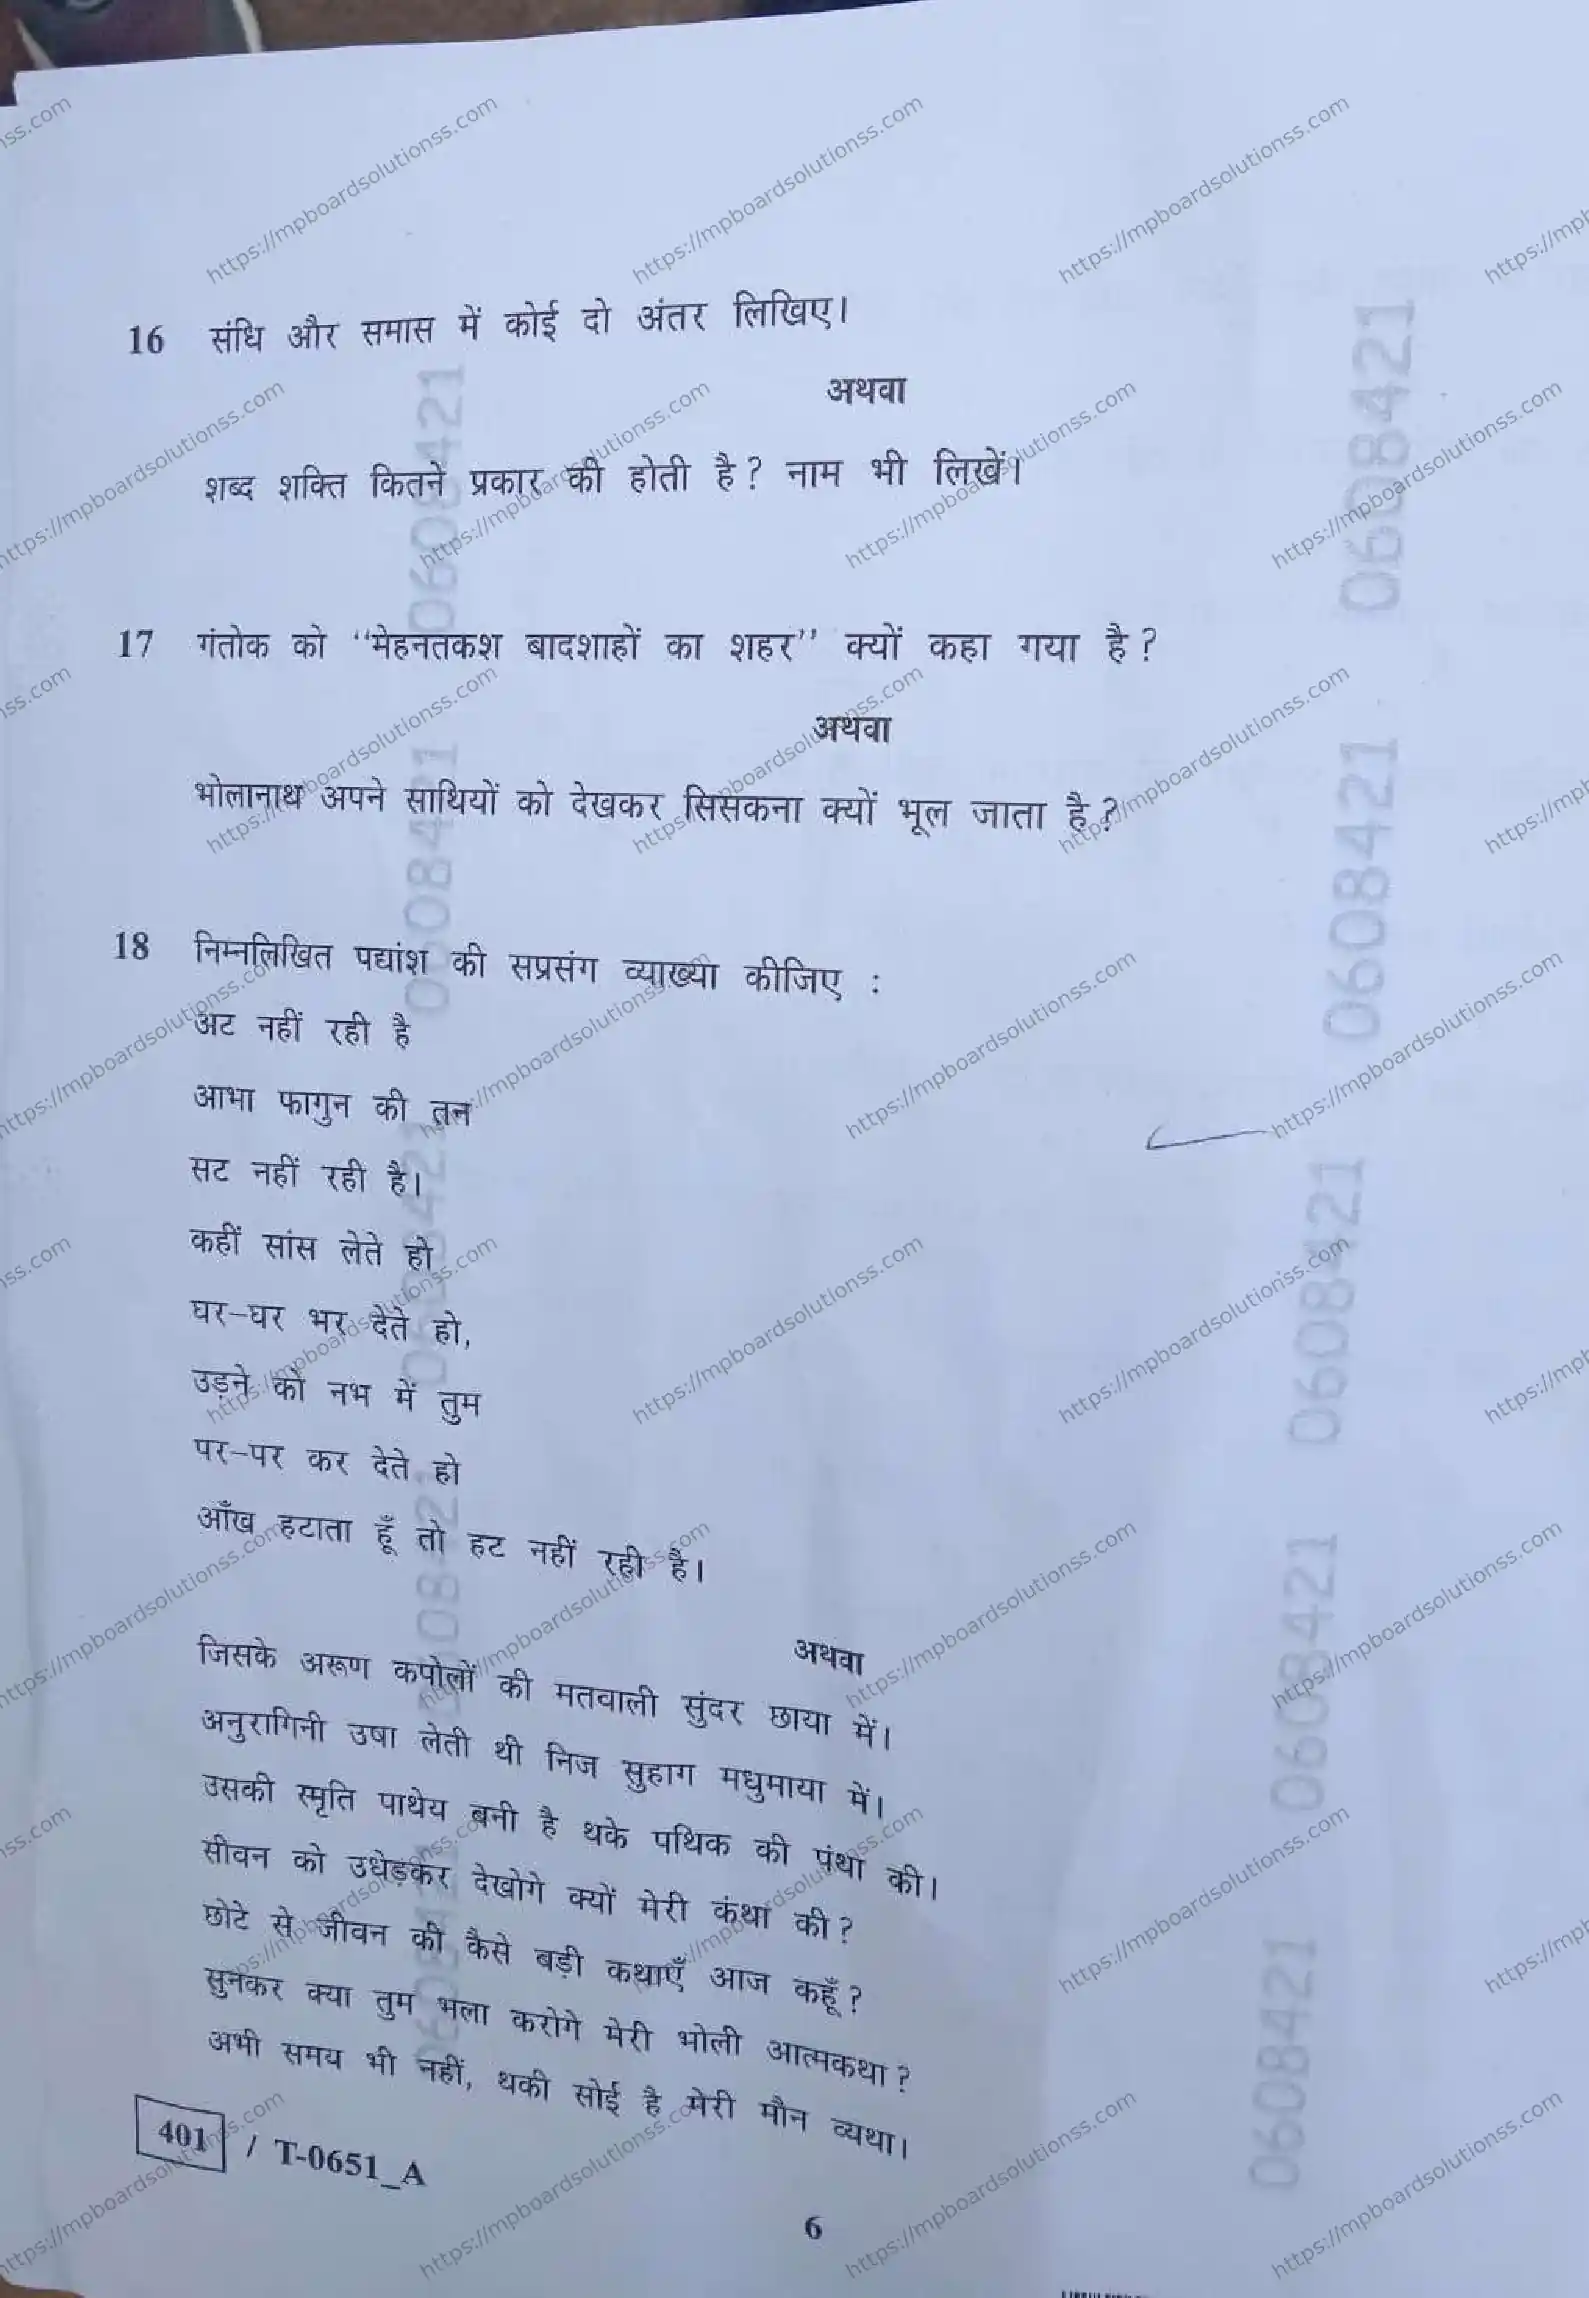 16 संधि और समास में कोई दो अंतर लिखिए।
अथवा
शब्द शक्ति कितने प्रकार की होती है? नाम भी लिखें।
17 गंतोक को "मेहनतकश बादशाहों का शहर" क्यों कहा गया है?
अथवा
भोलानाथ अपने साथियों को देखकर सिसकना क्यों भूल जाता है?
18 निम्नलिखित पद्यांश की सप्रसंग व्याख्या कीजिए :
अट नहीं रही है
आभा फागुन की तन
सट नहीं रही है।
कहीं सांस लेते हो
घर-घर भर देते हो,
उड़ने को नभ में तुम
पर-पर कर देते हो
आँख हटाता हूँ तो हट नहीं रही है।
अथवा
जिसके अरूण कपोलों की मतवाली सुंदर छाया में।
अनुरागिनी उषा लेती थी निज सुहाग मधुमाया में।
उसकी स्मृति पाथेय बनी है थके पथिक की पंथा की।
सीवन को उधेड़कर देखोगे क्यों मेरी कंथा की?
छोटे से जीवन की कैसे बड़ी कथाएँ आज कहूँ?
सुनकर क्या तुम भला करोगे मेरी भोली आत्मकथा?
अभी समय भी नहीं, थकी सोई है मेरी मौन व्यथा।
401 / T-0651_A
6
0608421
https://mpboardsolutionss.com